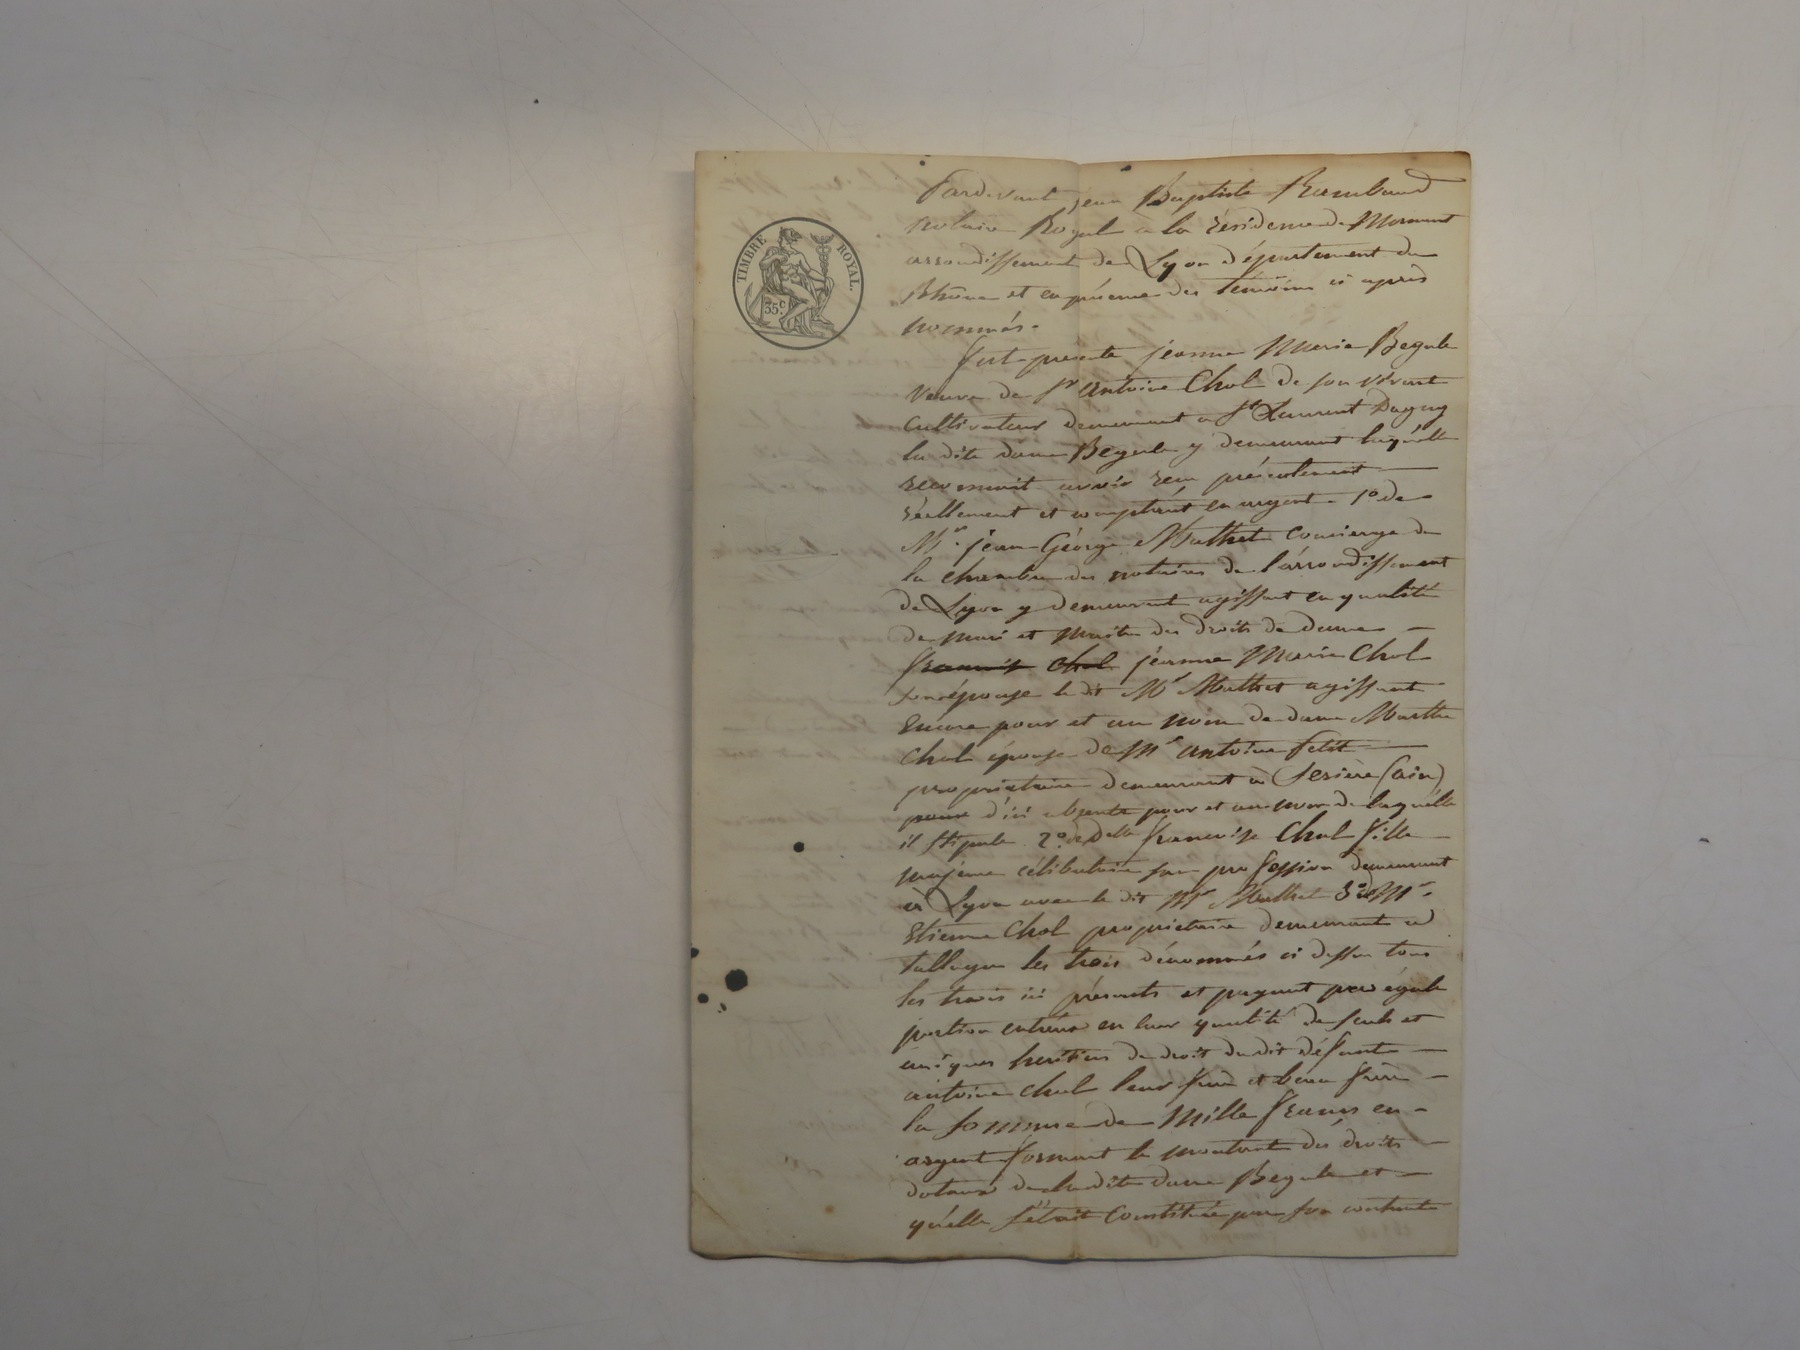 TIMBRE ROYAL.
35.c
Pardevant jean Baptiste Rambaud
notaire Royal a la résidence de Mornant
arrondissement de Lyon département du
Rhône et en présence des témoins ci après
nommés.
fut présente jeanne Marie Begule
veuve de Sr antoine Chol de son vivant
cultivateur demeurant a St Laurent Dagny
la dite dame Begule y demeurant laquélle
reconnait avoir reçu présentement
réellement et comptant en argent. 1o de
Mr. jean George Mathet concierge de
la chambre des notaires de l'árrondissement
de Lyon y demeurant agissant en qualité
de mari et maitre des droits de dame
francoise Chol jéanne Marie Chol
son épouse le dit Mr Mathet agissant
Encore pour et au nom de dame Marthe
Chol épouse de Mr antoine
propriétaire demeurant à (ain)
d'ici absente pour et au nom de laquélle
il stipule 2o de Delle francoise Chol fille
majeure célibataire san profession demeurant
à Lyon avec le dit Mr Mathet 3o de Mr.
Etienne Chol propriétaire demeurant a
talluyer les trois dénommés ci dessu tous
les trois ici présents et payant par égale
portion entreux en leur qualité de seuls et
uniques heritiers de droit du dit défunt
antoine Chol leur frere et beau frere
la somme de Mille francs en
argent formant le montant des droits
dotaux de la dite dame Begule et
qu'elle s'était Constituée par son contrat